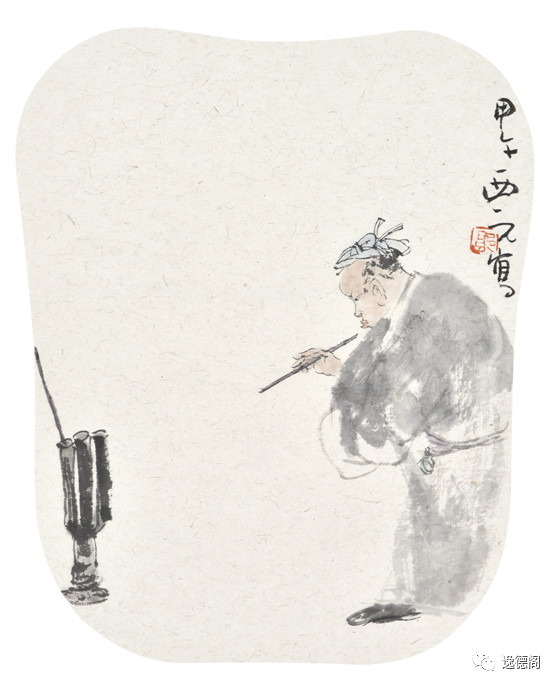 甲午西元寫
逸德阁